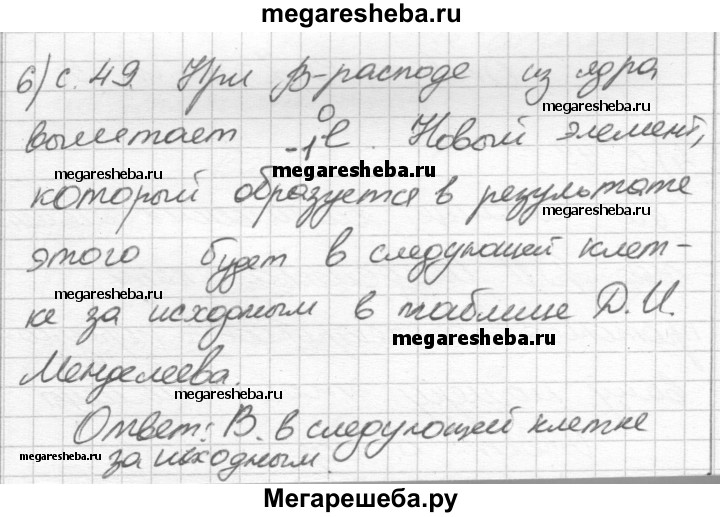 megaresheba.ru
6) с. 49. При β-распаде из ядра
megaresheba.ru
вылетает ⁰₋₁e. Новый элемент,
megaresheba.ru
megaresheba.ru
megaresheba.ru
который образуется в результате
megaresheba.ru
этого будет в следующей клет-
megaresheba.ru
ке за исходным в таблице Д.И.
megaresheba.ru
Менделеева.
megaresheba.ru
Ответ: В. в следующей клетке
megaresheba.ru
за исходным.
megaresheba.ru
Мегарешеба.ру